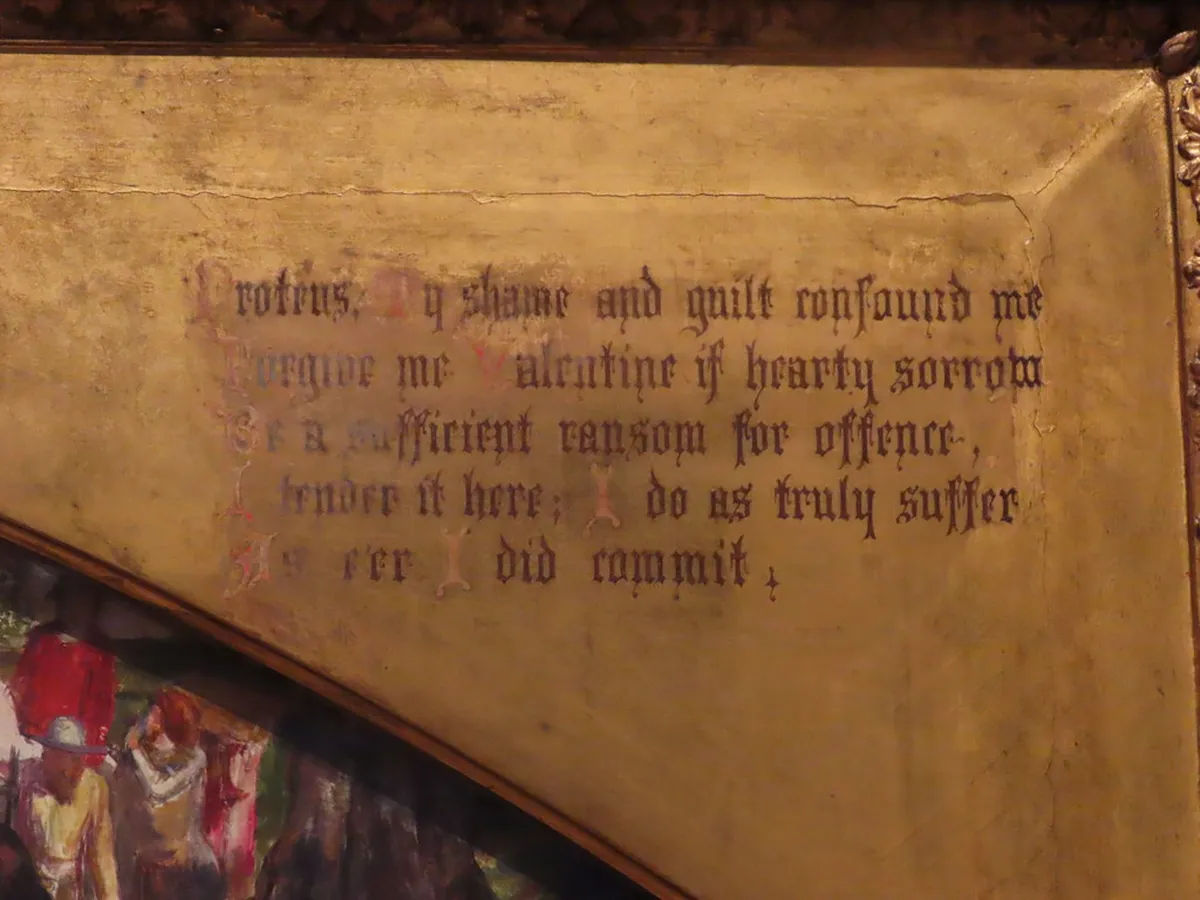 Proteus. My shame and guilt confound me
Forgive me Valentine if hearty sorrow
Be a sufficient ransom for offence,
I tender it here; I do as truly suffer
As e'er I did commit,